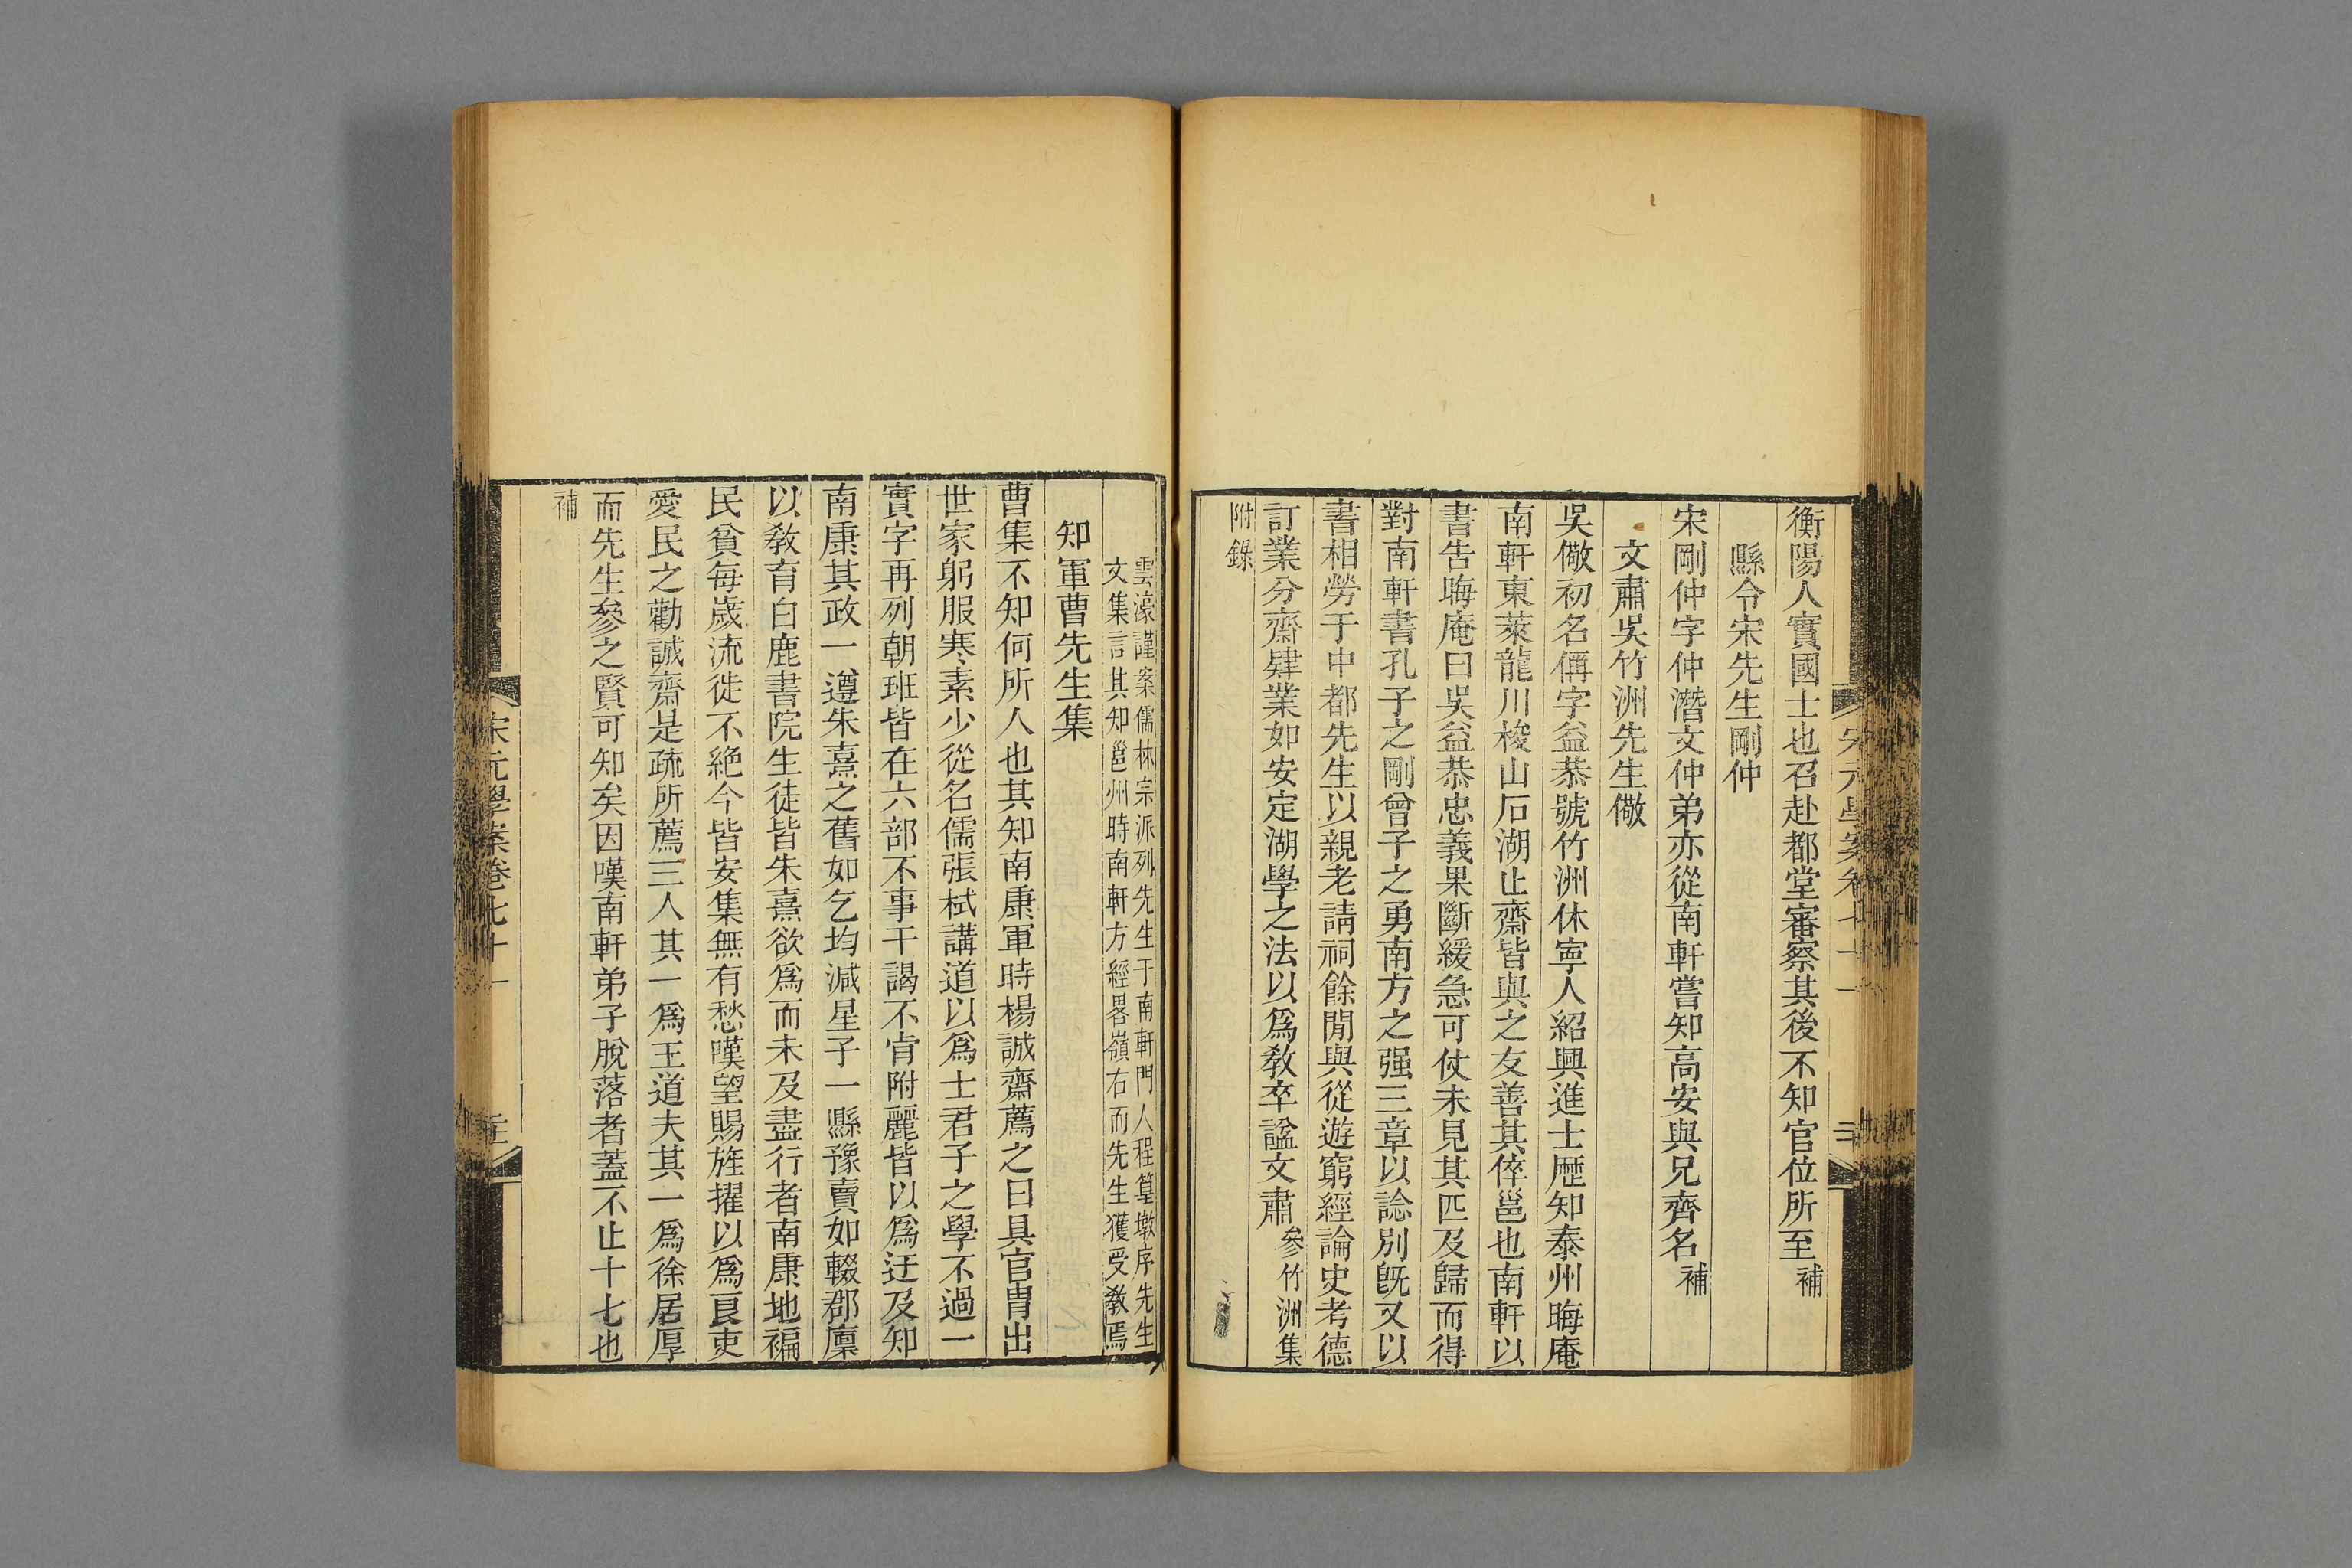 衡陽人實國士也召赴都堂審察其後不知官位所至補
縣令宋先生剛仲
宋剛仲字仲潛文仲弟亦從南軒嘗知高安與兄齊名補
文肅吳竹洲先生儆
吳儆初名偁字益恭號竹洲休寧人紹興進士歷知泰州晦庵
南軒東萊龍川梭山石湖止齋皆與之友善其倅邕也南軒以
書告晦庵曰吳益恭忠義果斷緩急可仗未見其匹及歸而得
對南軒書孔子之剛曾子之勇南方之强三章以諗別旣又以
書相勞于中都先生以親老請祠餘閒與從遊窮經論史考德
訂業分齋肄業如安定湖學之法以爲敎卒諡文肅參竹洲集
附錄
雲濠謹案儒林宗派列先生于南軒門人程篁墩序先生
文集言其知邕州時南軒方經畧嶺右而先生獲受敎焉
知軍曹先生集
曹集不知何所人也其知南康軍時楊誠齋薦之曰具官胄出
世家躬服寒素少從名儒張栻講道以爲士君子之學不過一
實字再列朝班皆在六部不事干謁不肯附麗皆以爲迂及知
南康其政一遵朱熹之舊如乞均減星子一縣豫賣如輟郡廩
以敎育白鹿書院生徒皆朱熹欲爲而未及盡行者南康地褊
民貧每歲流徙不絶今皆安集無有愁嘆望賜旌擢以爲良吏
愛民之勸誠齋是疏所薦三人其一爲王道夫其一爲徐居厚
而先生參之賢可知矣因嘆南軒弟子脫落者蓋不止十七也
補
宋元學案卷七十一